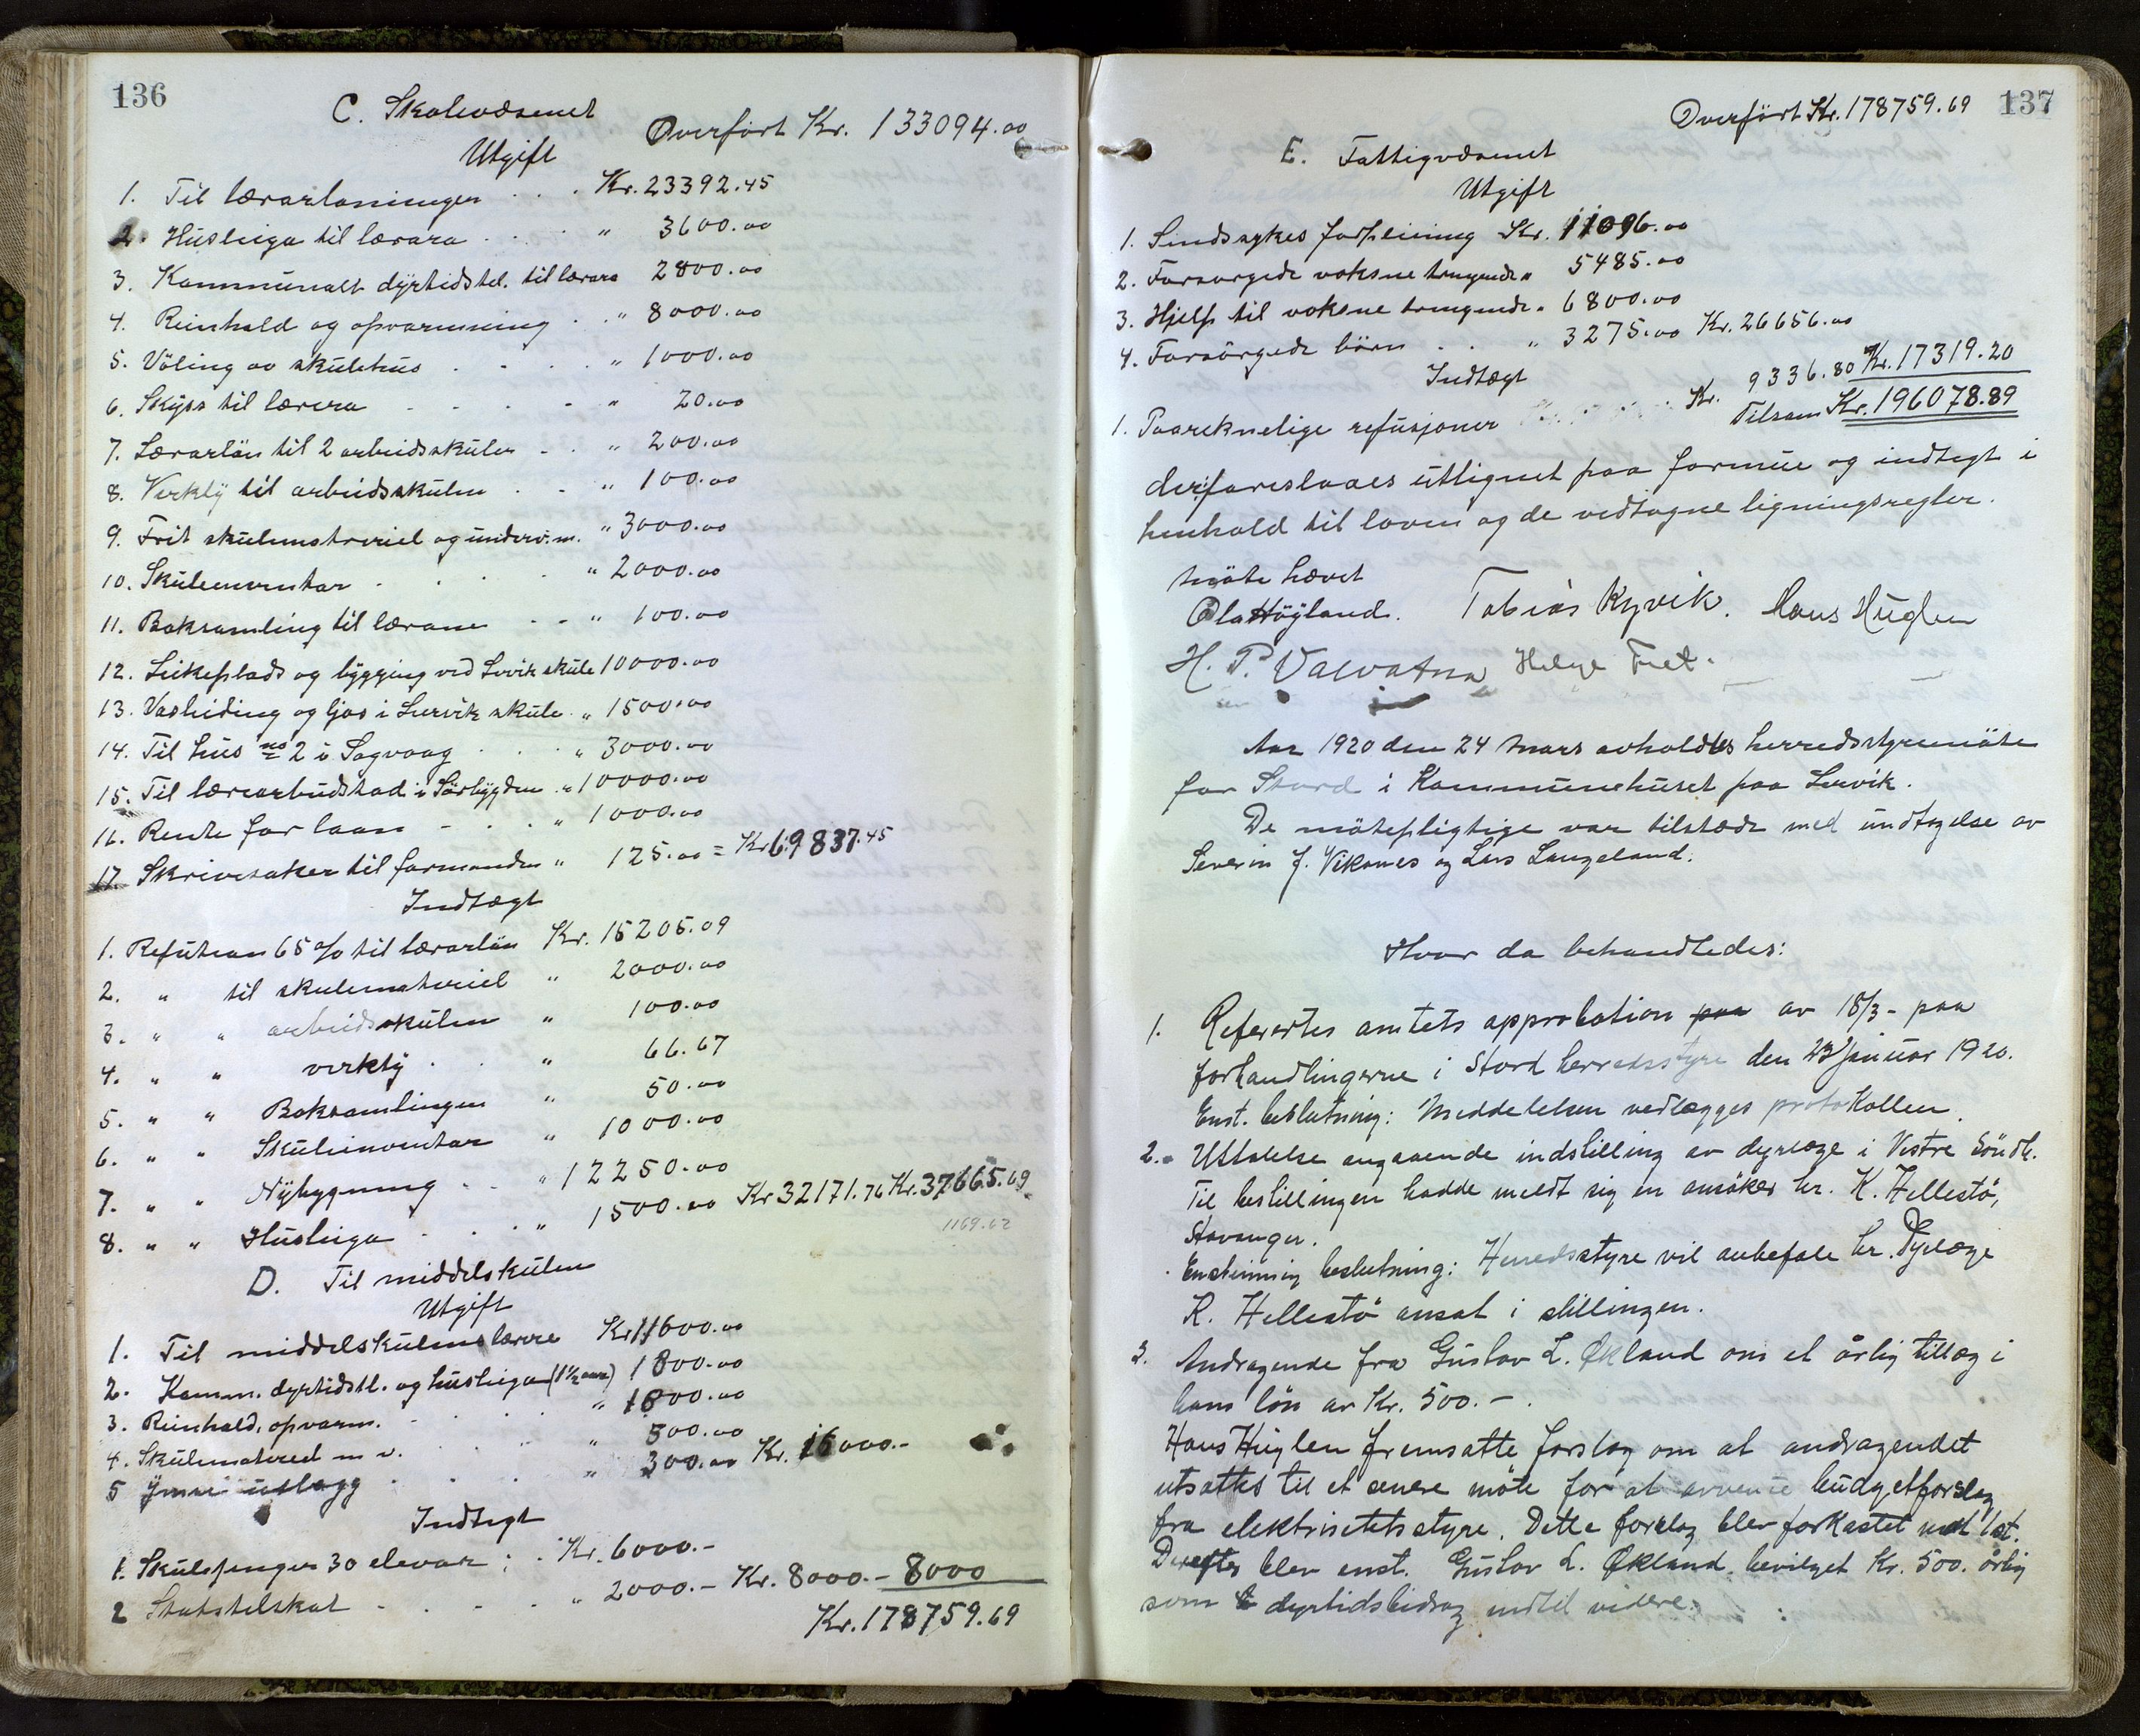 136
C. Skolevæsenet
Overført Kr. 133094.00
Utgift
1. Til lærarlønningen . . . Kr. 23392.45
2. Husleiga til lærara . . . " 3600.00
3. Kommunalt dyrtidstil. til lærara 2800.00
4. Reinhald og opvarmning . . " 8000.00
5. Vøling av skulehus . . . . " 1000.00
6. Skyss til lærera . . . . " 20.00
7. Lærarløn til 2 arbeidsskuler . . " 200.00
8. Verkty til arbeidsskulen . . " 100.00
9. Frit skulemateriel og underv.m. " 3000.00
10. Skuleinventar . . . . " 2000.00
11. Boksamling til lærane . . " 100.00
12. Leikeplads og bygging ved Lervik skule 10000.00
13. Vasleiding og ljos i Lervik skule " 1500.00
14. Til hus no 2 i Sagvaag . . . " 3000.00
15. Til lærarbustad i Sørbygden " 10000.00
16. Rente for laan . . . " 1000.00
17 Skrivesaker til formanden " 125.00 = Kr 69837.45
Indtægt
1. Refusion 65 % til lærarløn Kr. 15205.09
2. " til skulemateriel " 2000.00
3. " " arbeidsskulen " 100.00
4. " " verkty . . " 66.67
5. " " Boksamlingen " 50.00
6. " " Skuleinventar " 1000.00
7. " " Nybygning . . " 12250.00
8. " " Husleiga . . . " 1500.00 Kr 32171.76 Kr. 37665.69
1169.62
D. Til middelskulen
Utgift
1. Til middelskulens lærere Kr 11600.00
2. Komm. dyrtidstil. og husleiga (1½ aar) 1800.00
3. Reinhald, opvarm. . . . . " 1800.00
4. Skulemateriel m v. . . . . " 500.00
5 Ymse utlegg . . . . " 300.00 Kr. 16000.-
Indtegt
1. Skulepenger 30 elevar . . Kr. 6000.-
2 Statstilskot . . . . " 2000.- Kr. 8000.- 8000
Kr. 178759.69
Overført Kr. 178759.69 137
E. Fattigvæsenet
Utgift
1. Sindssykes forpleining Kr. 11096.00
2. Forsørgede voksne trengende " 5485.00
3. Hjelp til voksne trengende " 6800.00
4. Forsørgede børn . . " 3275.00 Kr. 26656.00
Indtægt
1. Paareknelige refusjoner Kr. 9336.80 Kr. 17319.20
Tilsam Kr. 196078.89
der foreslaaes utlignet paa formue og indtegt i
henhold til loven og de vedtagne ligningsregler.
Møte hævet
Ola Høyland. Tobias Kyvik. Hans Huglen
H. P. Valvatna Helge Tret.
Aar 1920 den 24 Mars avholdtes herredsstyremøte
for Stord i Kommunehuset paa Lervik.
De møtepligtige var tilstæde med undtagelse av
Severin J. Vikanes og Lars Langeland.
Hvor da behandledes:
1. Referertes amtets approbation paa av 18/3 - paa
forhandlingerne i Stord herredsstyre den 23 Januar 1920.
Enst. beslutning: Meddelelsen vedlægges protokollen.
2. Uttalelse angaaende indstilling av dyrlæge i Vestre Søndh.
Til bestillingen hadde meldt sig en ansøker hr. K. Hellestø,
Stavanger.
Enstemmig beslutning: Herredsstyre vil anbefale hr. Dyrlæge
K. Hellestø ansat i stillingen.
3. Andragende fra Gustav L. Økland om et årlig tillæg i
hans løn av Kr. 500.-.
Hans Huglen fremsatte forslag om at andragendet
utsattes til et senere møte for at avvente budgetforslag
fra elektrisetetsstyre. Dette forslag blev forkastet mot 1 st.
Derefter blev enst. Gustav L. Økland bevilget Kr. 500. årlig
som dyrtidsbidrag indtil videre.